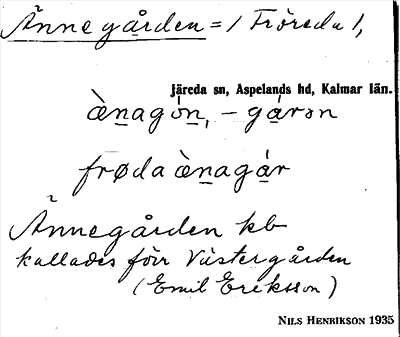 Ännegården = / Fröreda 1,
Järeda sn, Aspelands hd, Kalmar län.
ὰn̲agȯ́n̲, – gȧ́rən
frøda ὰn̲agȧ́r
Ännegården kb
kallades förr Västergården
(Emil Eriksson)
NILS HENRIKSON 1935